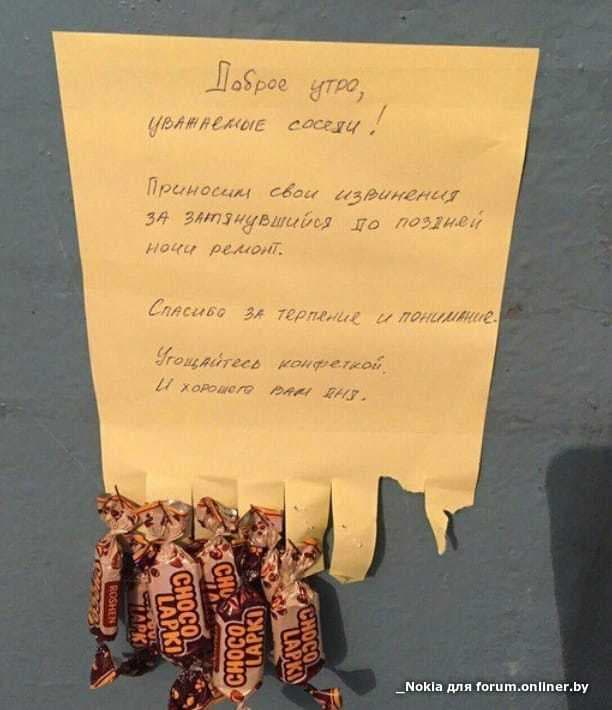 Доброе утро,
уважаемые соседи!
Приносим свои извинения
за затянувшийся до поздней
ночи ремонт.
Спасибо за терпение и понимание.
Угощайтесь конфеткой.
И хорошего вам дня.
ROSHEN
CHOCO
LAPKI
CHOCO
LAPKI
CHOCO
LAPKI
_Nokia для forum.onliner.by